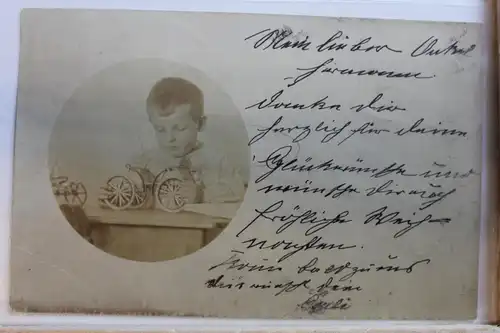 Mein lieber Onkel
Hermann.
Danke dir
herzlich für deine
Glückwünsche und
wünsche dir auch
fröhliche Weih-
nachten.
Komm bald zu uns
dein